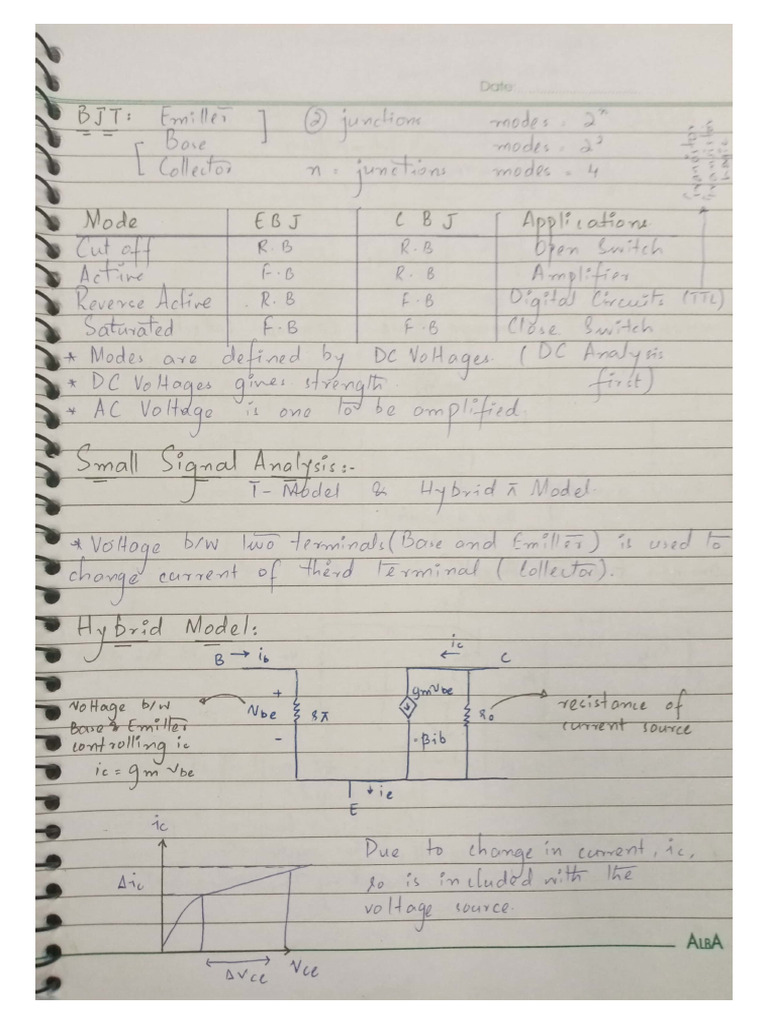 Date:
BJT: Emitter ] ② junctions modes = 2ⁿ
Base modes = 2²
[ Collector n = junctions modes = 4
Mode EBJ CBJ Applications
Cut off R.B R.B Open Switch
Active F.B R.B Amplifier
Reverse Active R.B F.B Digital Circuits (TTL)
Saturated F.B F.B Close Switch
* Modes are defined by DC Voltages. (DC Analysis
* DC Voltages gives strength. first)
* AC Voltage is one to be amplified.
Small Signal Analysis:-
T-Model & Hybrid π Model.
* Voltage b/w two terminals (Base and Emitter) is used to
change current of third terminal (Collector).
Hybrid Model:
B → ib ic ← C
Voltage b/w
Base & Emitter
controlling ic
ic = gm Vbe
+ Vbe -
rπ
gmVbe
βib
ro
resistance of
current source
↓ ie
E
ic
Δic
ΔVce
Vce
Due to change in current, ic,
ro is included with the
voltage source.
ALBA